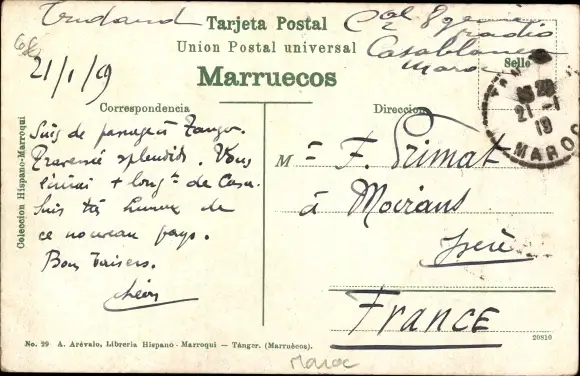 Tarjeta Postal
Union Postal universal
Marruecos
Casablanca
Maroc
Sello
21-1
19
MAROC
21/1/19
Correspondencia
Dirección
Suis de passage à Tanger.
Traversée splendide. Vous
écrirai + longt de Casa.
Suis très heureux de
ce nouveau pays.
Bons baisers.
Léon
M F. Primat
à Moirans
Isère
FRANCE
Coleccion Hispano-Marroqui
No. 29 A. Arévalo, Libreria Hispano-Marroqui — Tánger. (Marruècos).
20810
Maroc